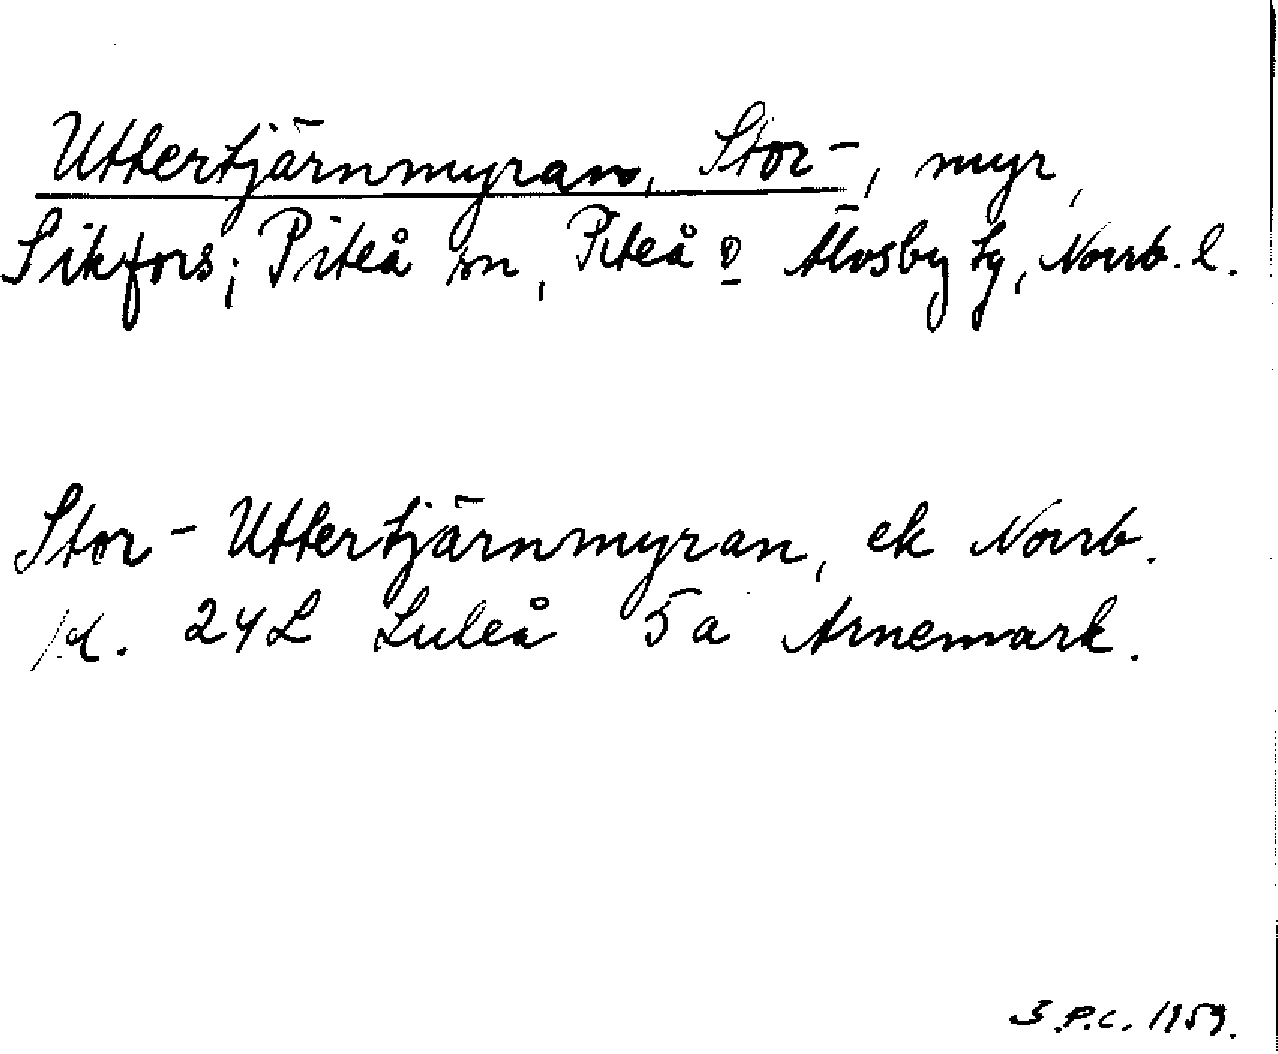 Uttertjärnmyran, Stor-, myr,
Sikfors; Piteå sn, Piteå o Älvsby tg, Norrb. l.
Stor-Uttertjärnmyran, ek Norrb.
kt. 24L Luleå 5a Arnemark.
S.P.C. 1959.